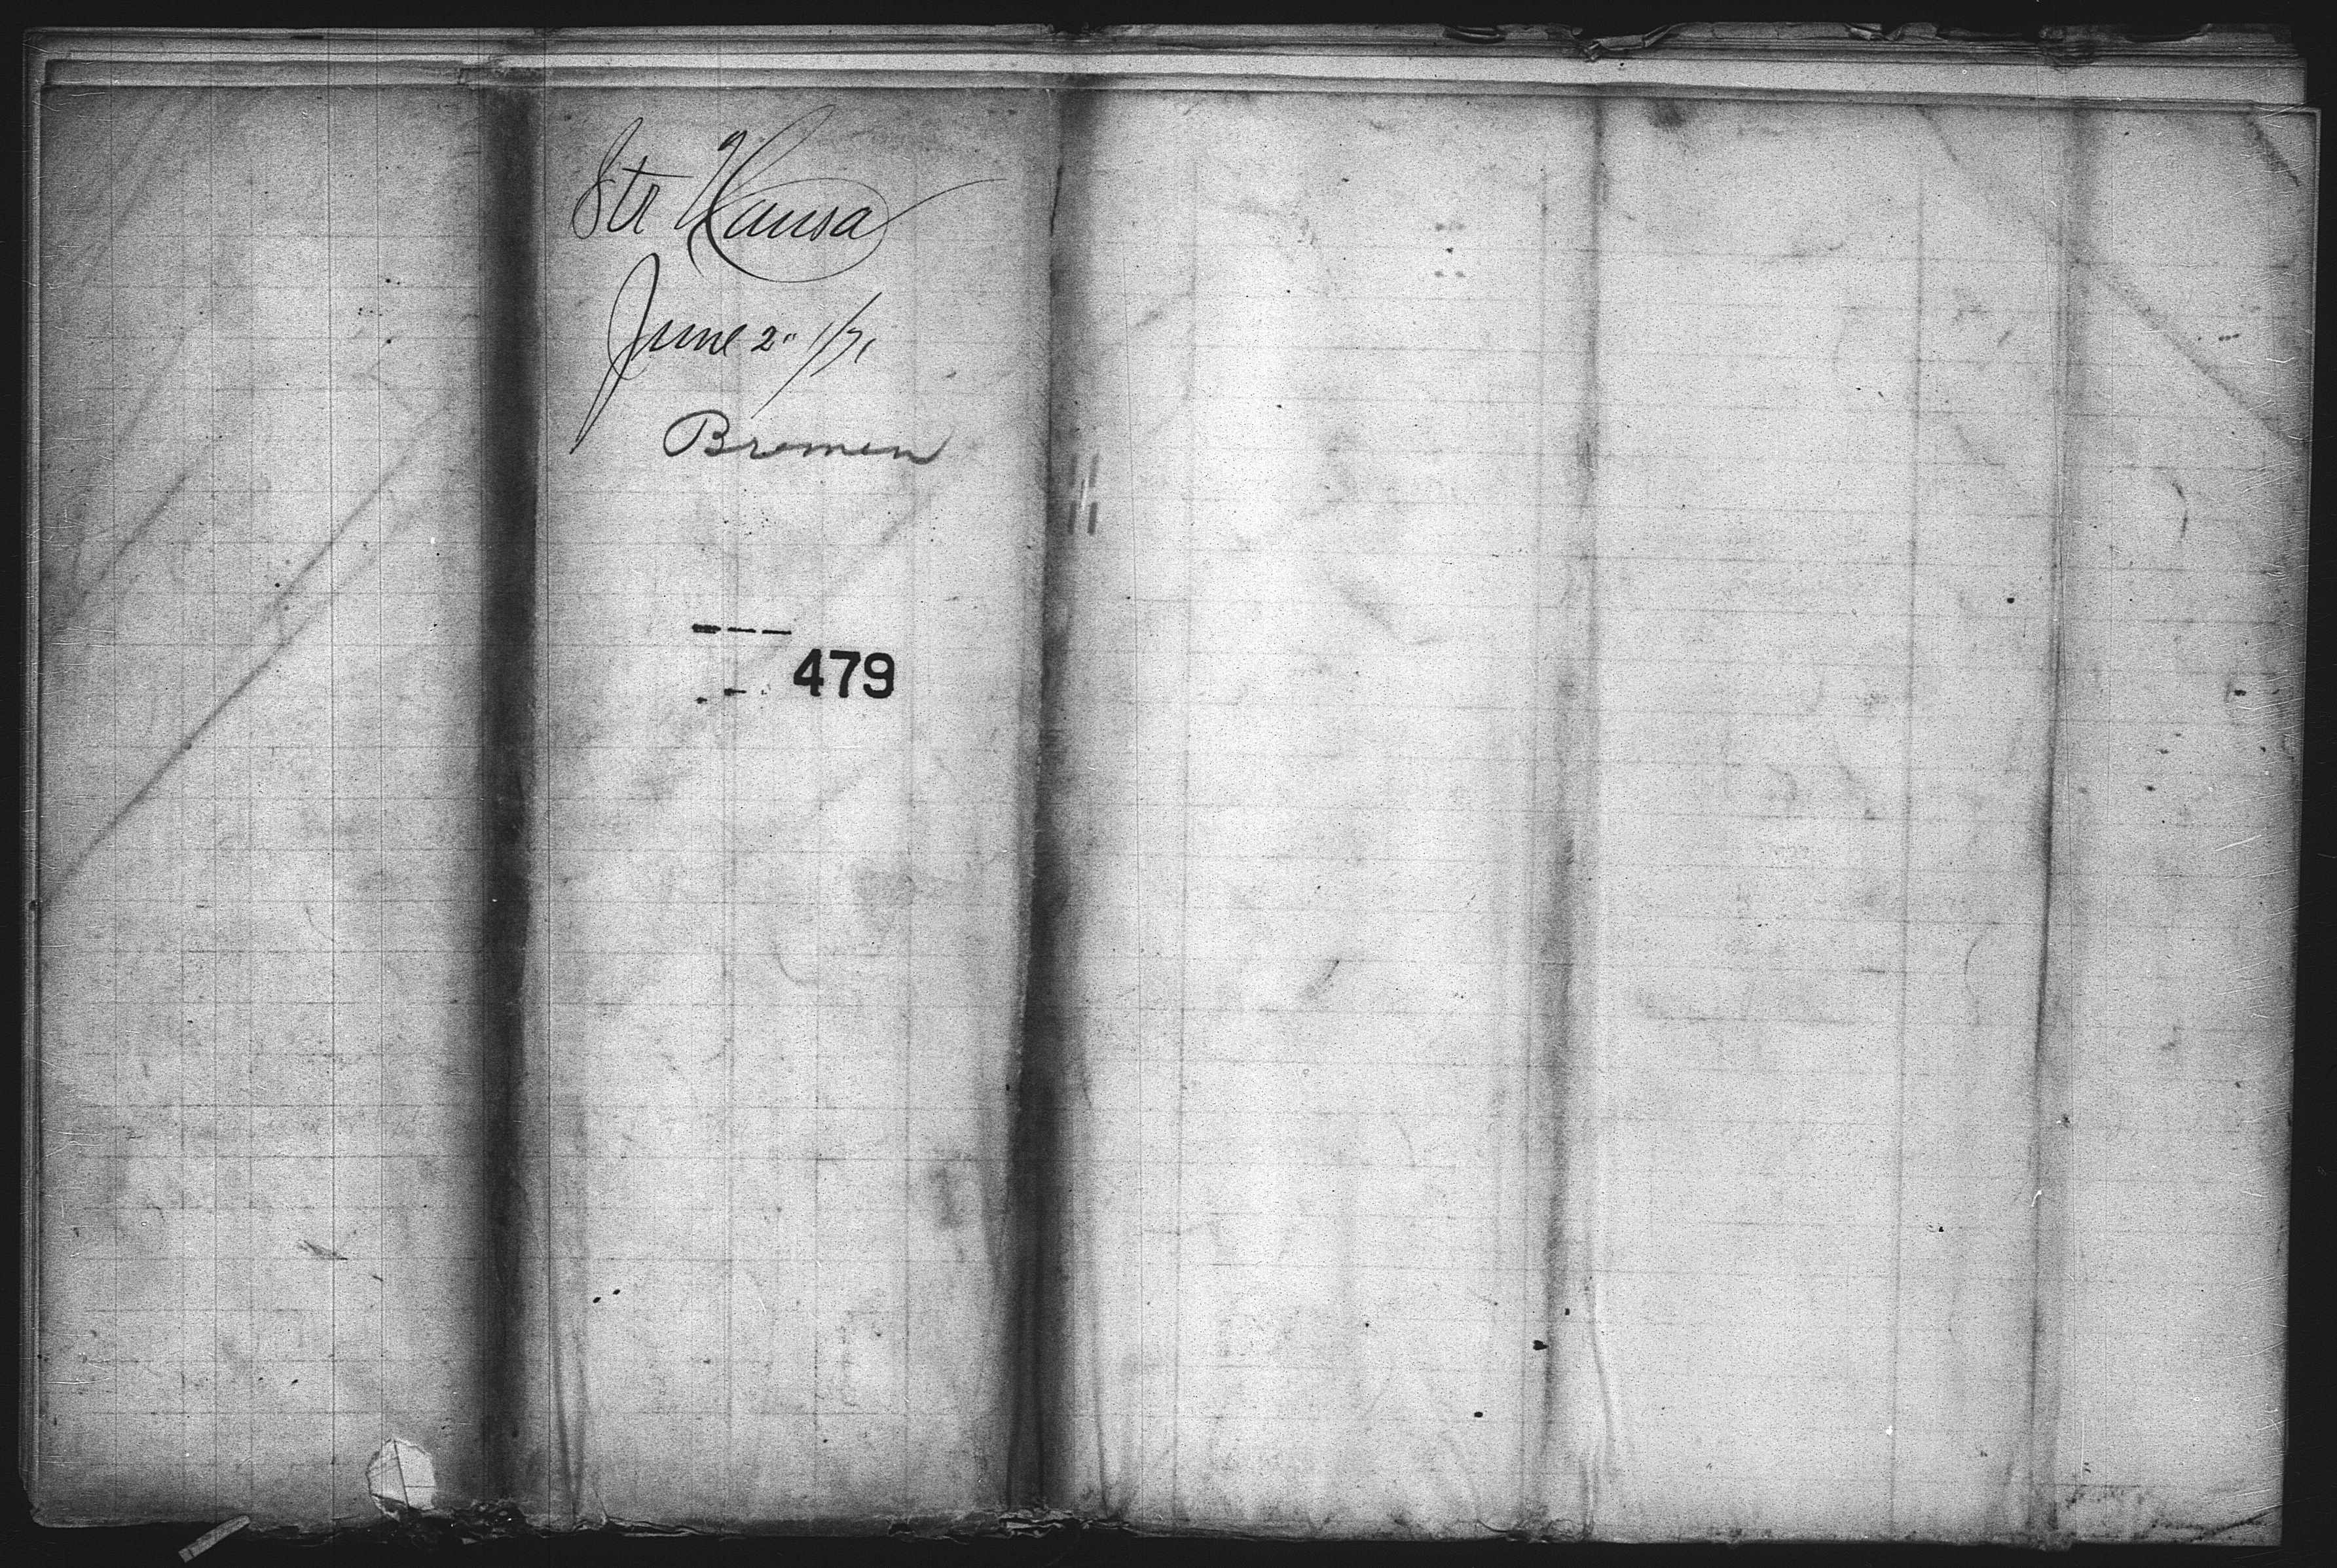 Str Hansa
June 2" 1/71
Bremen
479